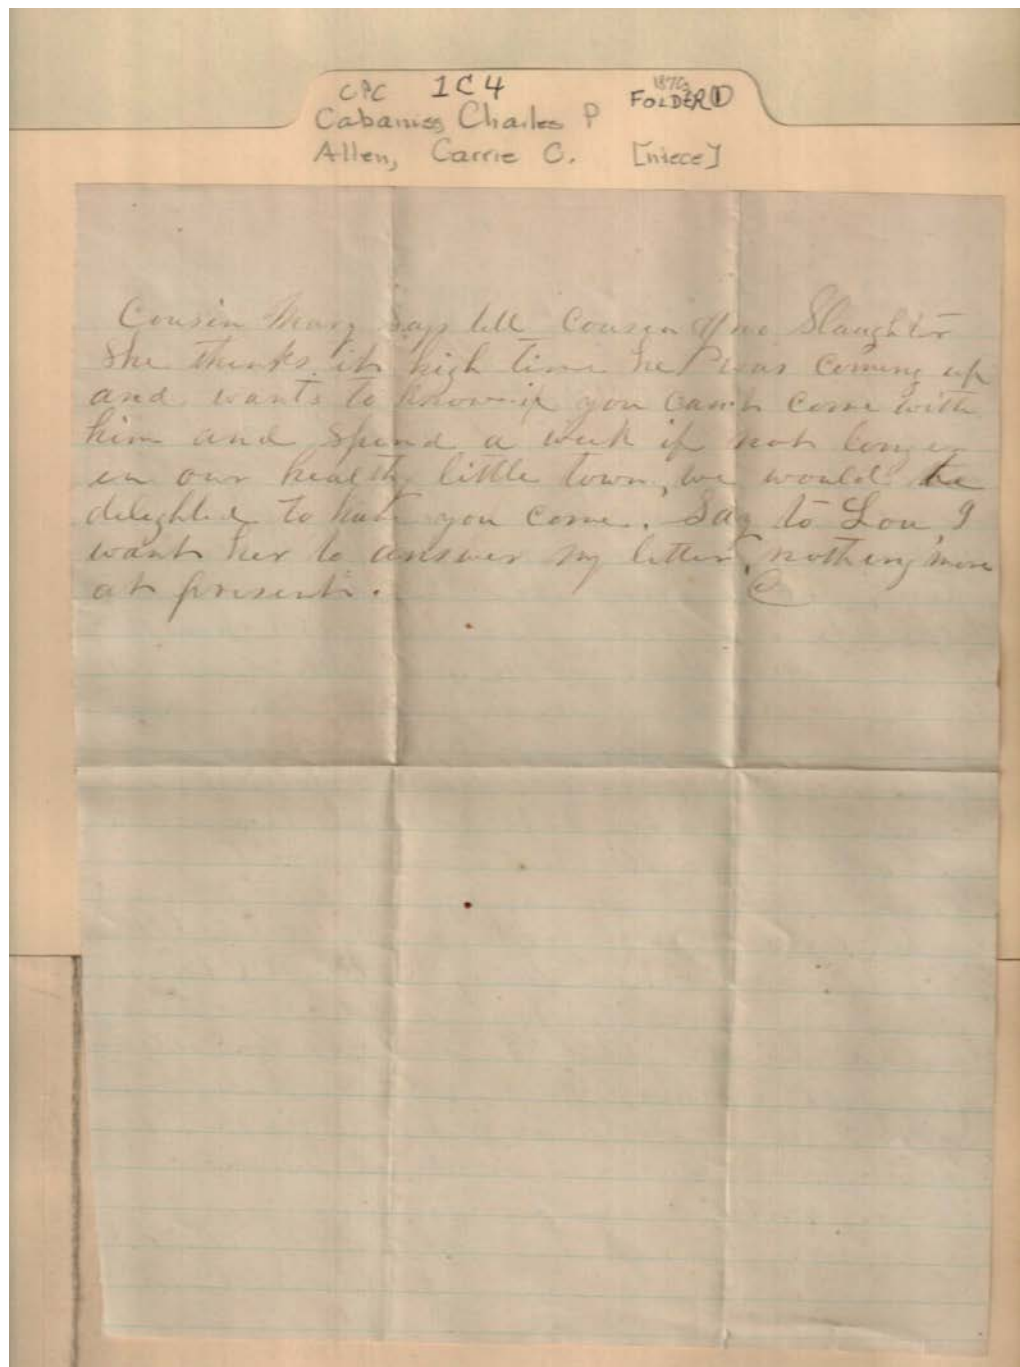 CPC 1C4 1870s
FOLDER 1
Cabaniss Charles P
Allen, Carrie C. [niece]
Cousin Mary says tell Cousin Jno Slaughter
she thinks its high time he was coming up
and wants to know if you can't come with
him and spend a week if not longer
in our healthy little town, we would be
delighted to have you come. Say to Lou, I
want her to answer my letter, nothing more
at present. C